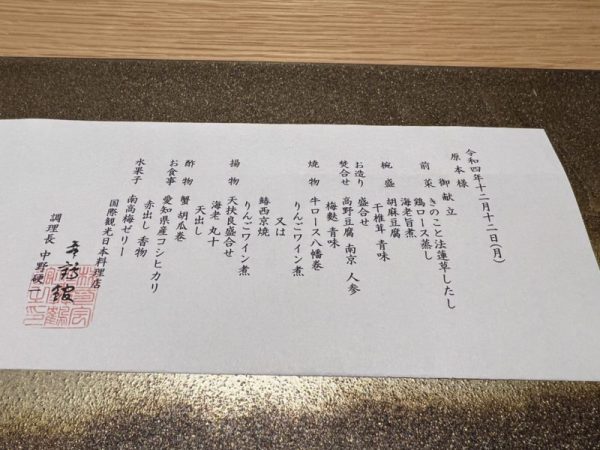 令和四年十二月十二日(月)
原本様
御献立
前菜 きのこと法蓮草したし
鶏ロース蒸し
海老旨煮
椀盛 胡麻豆腐
干椎茸 青味
お造り 盛合せ
焚合せ 高野豆腐 南京 人参
梅麩 青味
焼物 牛ロース八幡巻
りんごワイン煮
又は
鰆西京焼
りんごワイン煮
揚物 天扶良盛合せ
海老 丸十
天出し
酢物 蟹 胡瓜巻
お食事 愛知県産コシヒカリ
赤出し 香物
水果子 南高梅ゼリー
国際観光日本料理店
調理長 中野硬一